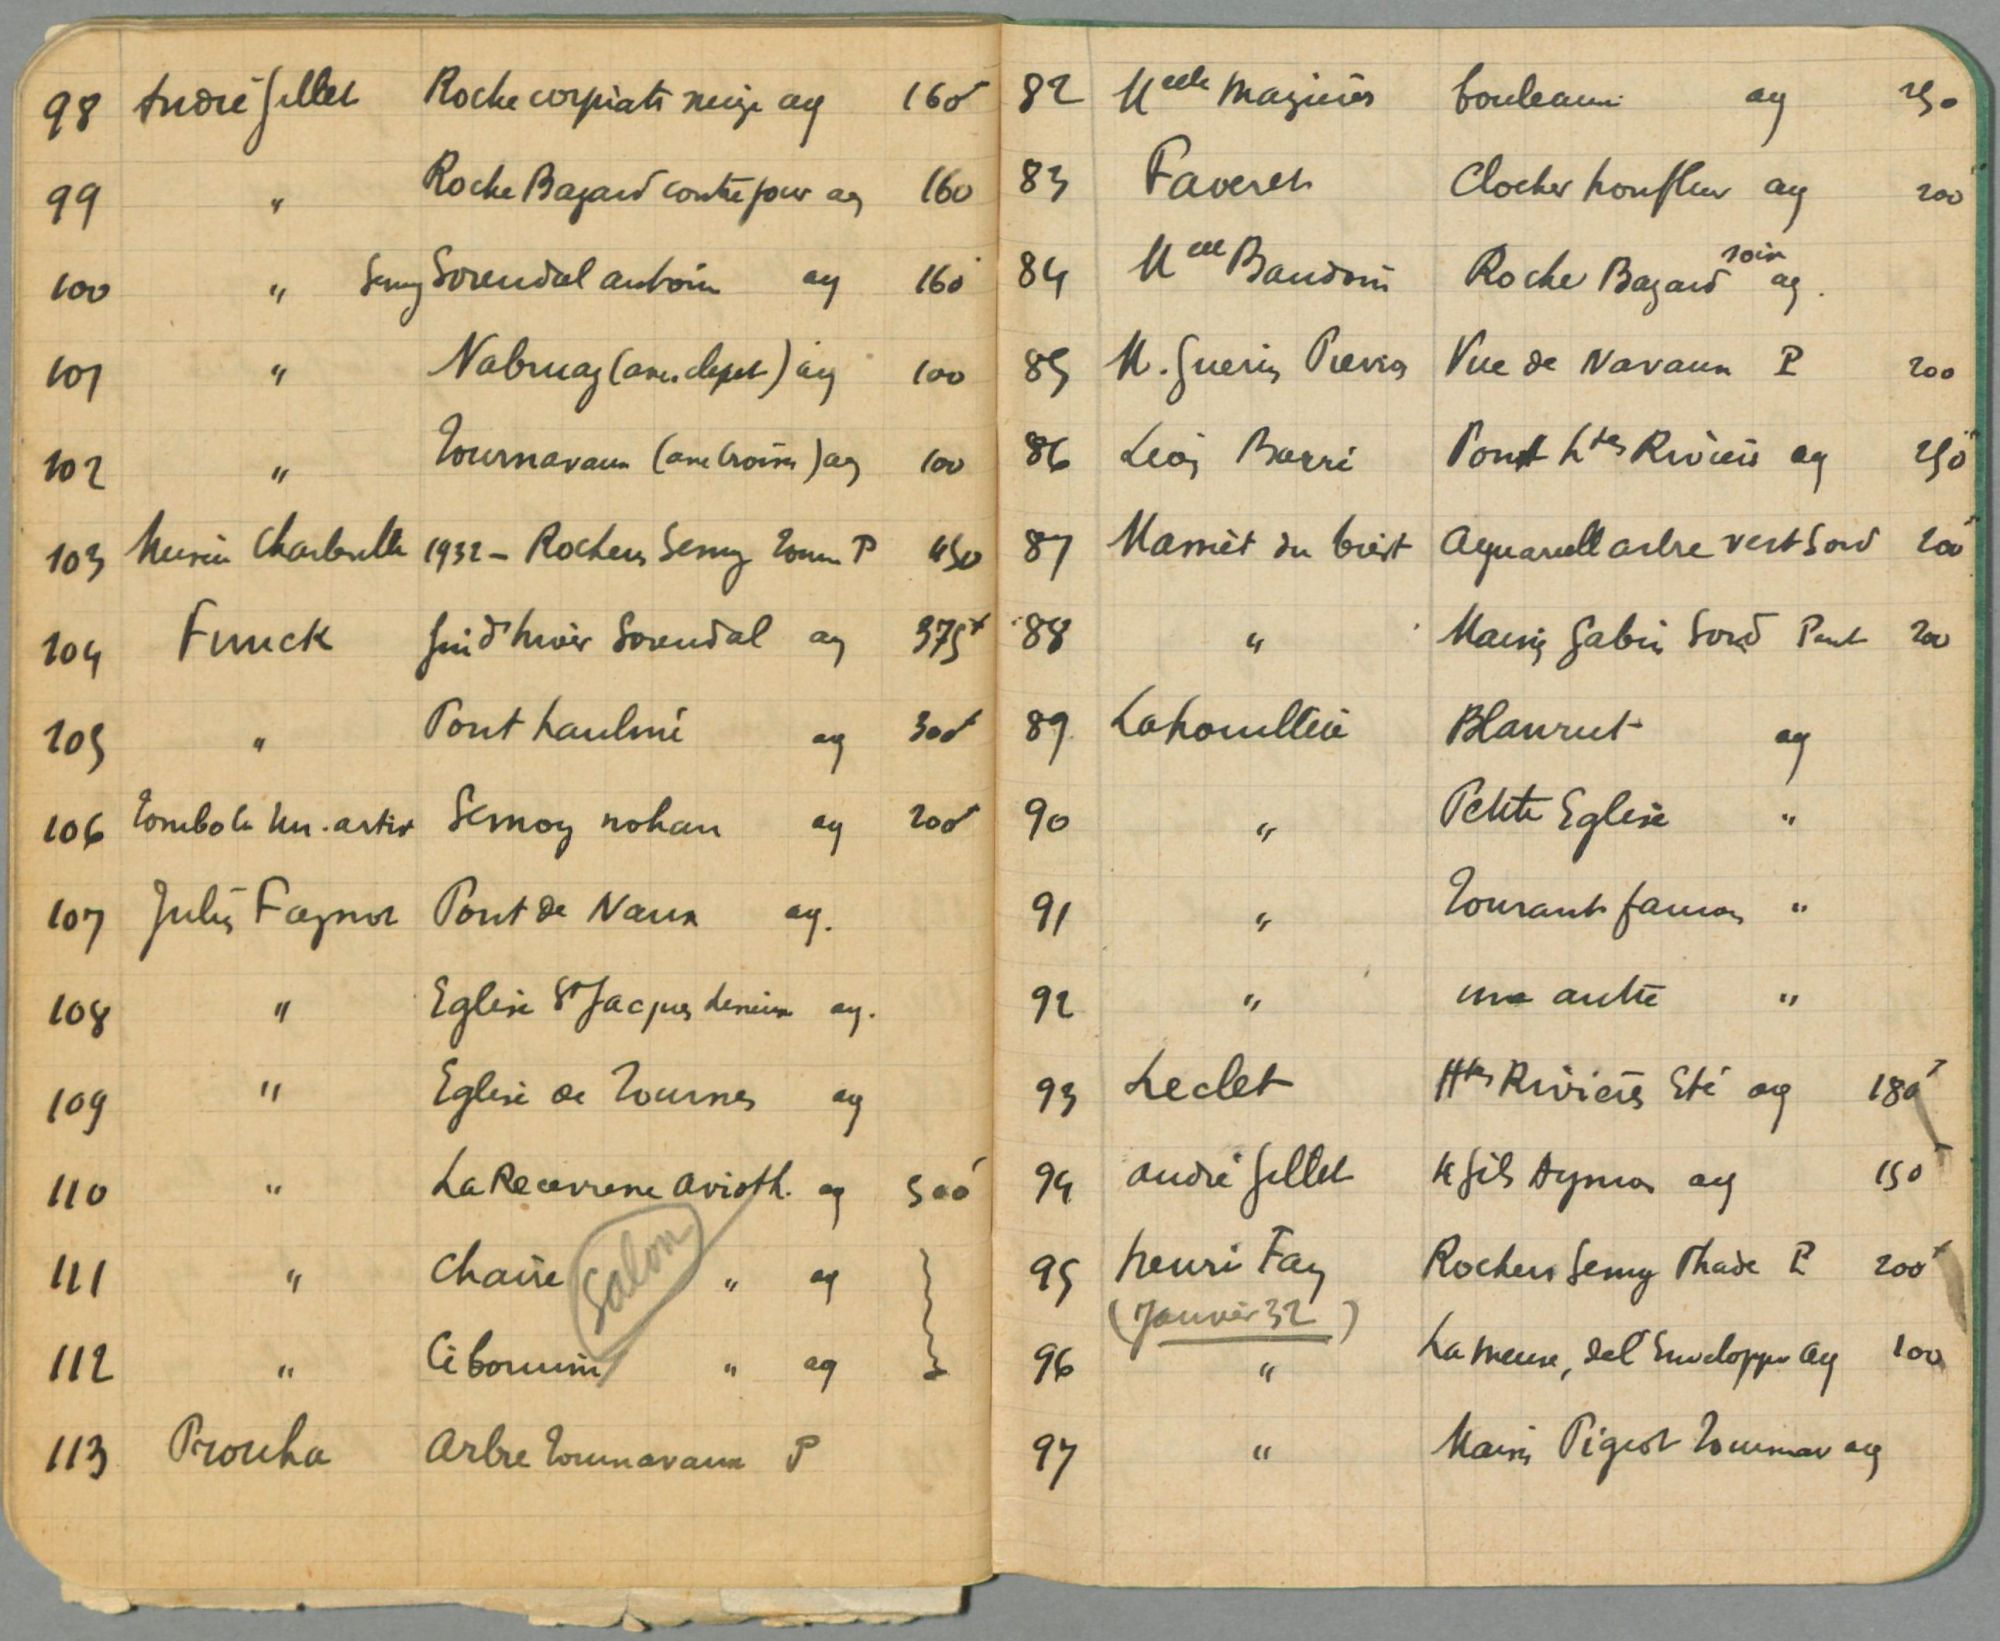 98 André Gillet Roche corpiats neige aq 160
99 " Roche Bayard contre jour aq 160
100 " Semoy Sorendal aq 160
101 " ( ) aq 100
102 " Tournavaux ( ) aq 100
103 Charleville 1932 - Rochers Semoy Tourn P 450
104 Funck d'hiver Sorendal aq 375
105 " Pont haulmé aq 300
106 Tombola Un. artis Semoy nohan aq 200
107 Jules Faynot Pont de Naux aq.
108 " Eglise St Jacques Lisieux aq.
109 " Eglise de Tournes aq
110 " La Recevresse Avioth. aq 500
111 " Chaire " aq
Salon
112 " Ciborium " aq
113 Prouha Arbre Tournavaux P
82 Melle Mazières bouleaux aq 250
83 Faveret Clocher honfleur aq 200
84 Melle Baudoin Roche Bayard soir aq.
85 M. Guerin Vue de Navaux P 200
86 Léon Barré Pont Htes Rivières aq 250
87 du Aquarelle arbre vert Sord 200
88 " Maison Gabin Sord Peint 200
89 Lahoullière Blanrut aq
90 " Petite Eglise "
91 " Tourant "
92 " une autre "
93 Leclet Htes Rivières Eté aq 180
94 André Gillet 4 fils Aymon aq 150
95 henri Fay Rochers Semoy Phade P 200
(Janvier 32)
96 " La Meuse, de l'Enveloppe aq 100
97 " Maison Pigeot Tournav aq